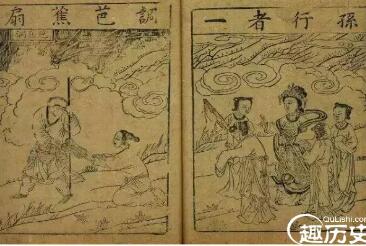 孫行者一
調芭蕉扇
QuLiShi.com
趣历史